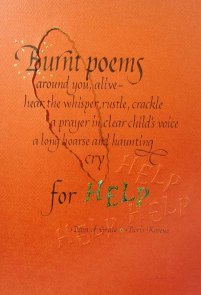 Burnt poems
around you, alive –
hear the whisper, rustle, crackle
a prayer in clear child's voice
a long hoarse and haunting
cry
for HELP
HELP
HELP
HELP HELP